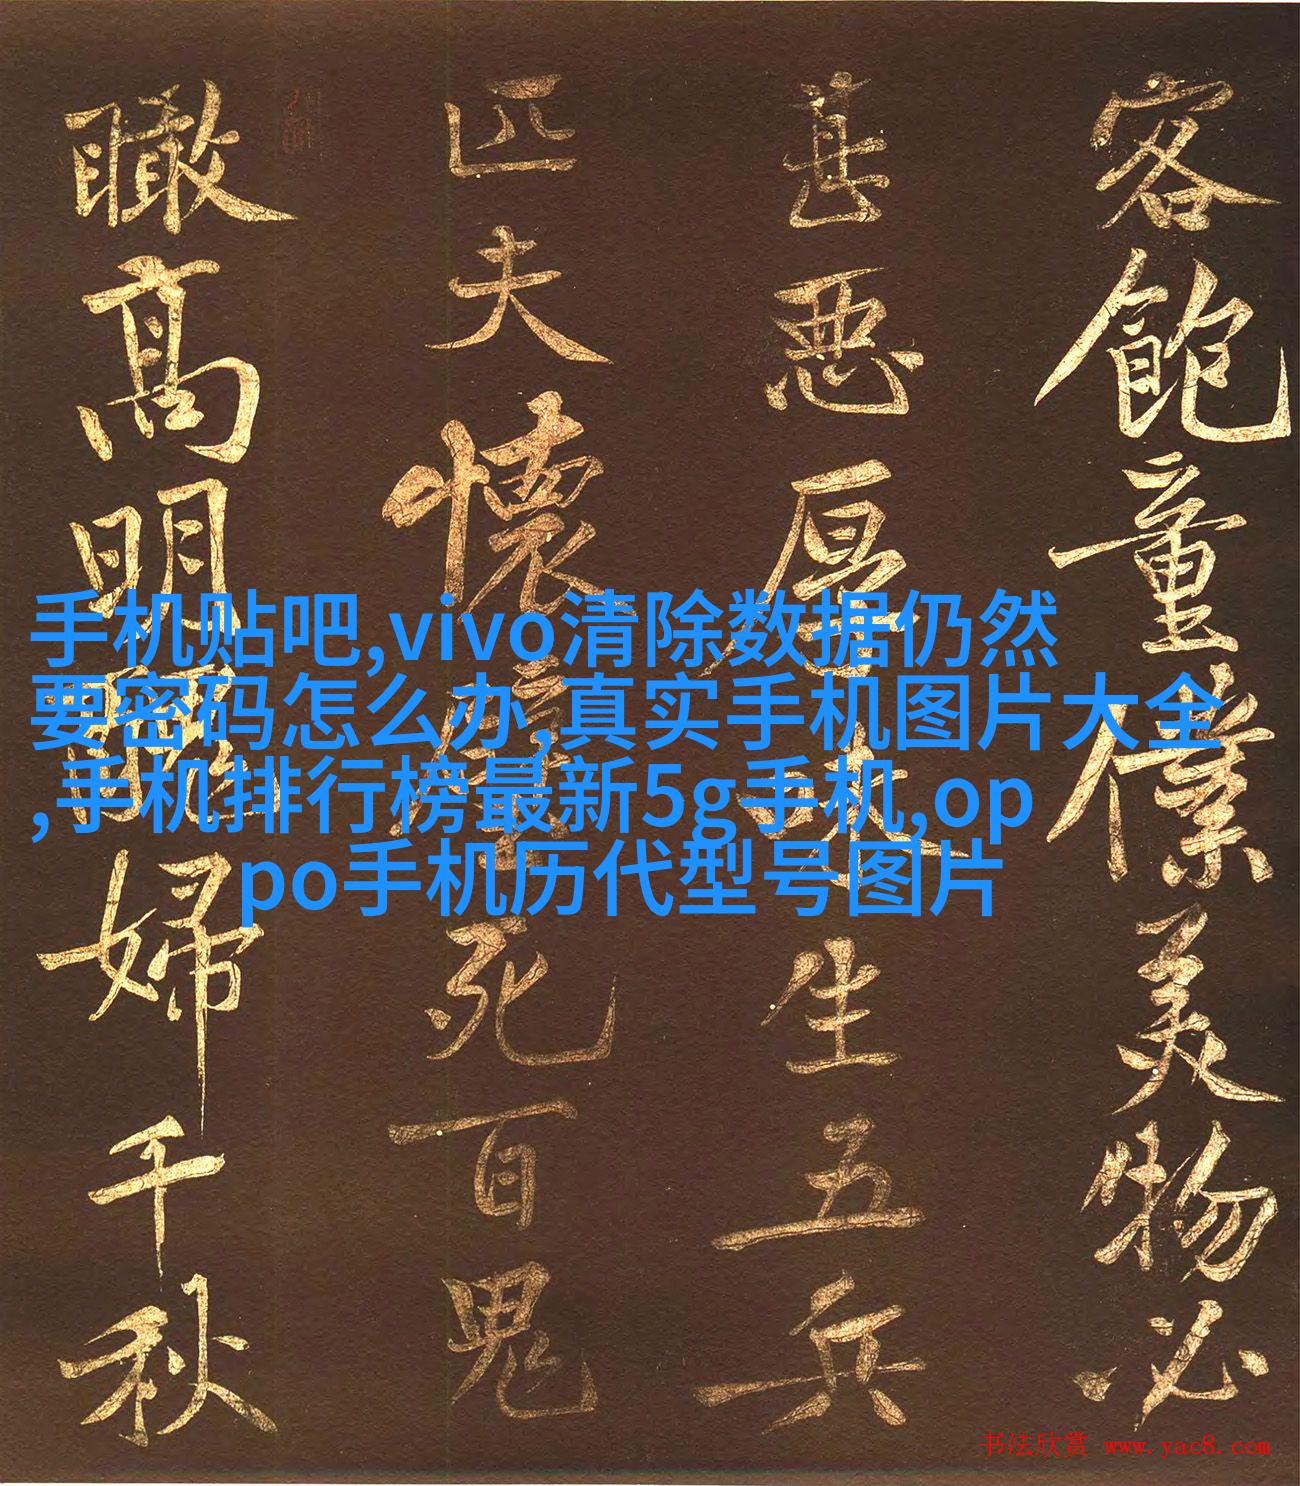 客飽童僕美物必
甚惡厚味生五兵
匹夫懷璧死百鬼
瞰高明醜婦千秋
手机贴吧,vivo清除数据仍然
要密码怎么办,真实手机图片大全
,手机排行榜最新5g手机,op
po手机历代型号图片
书法欣赏 www.yac8.com